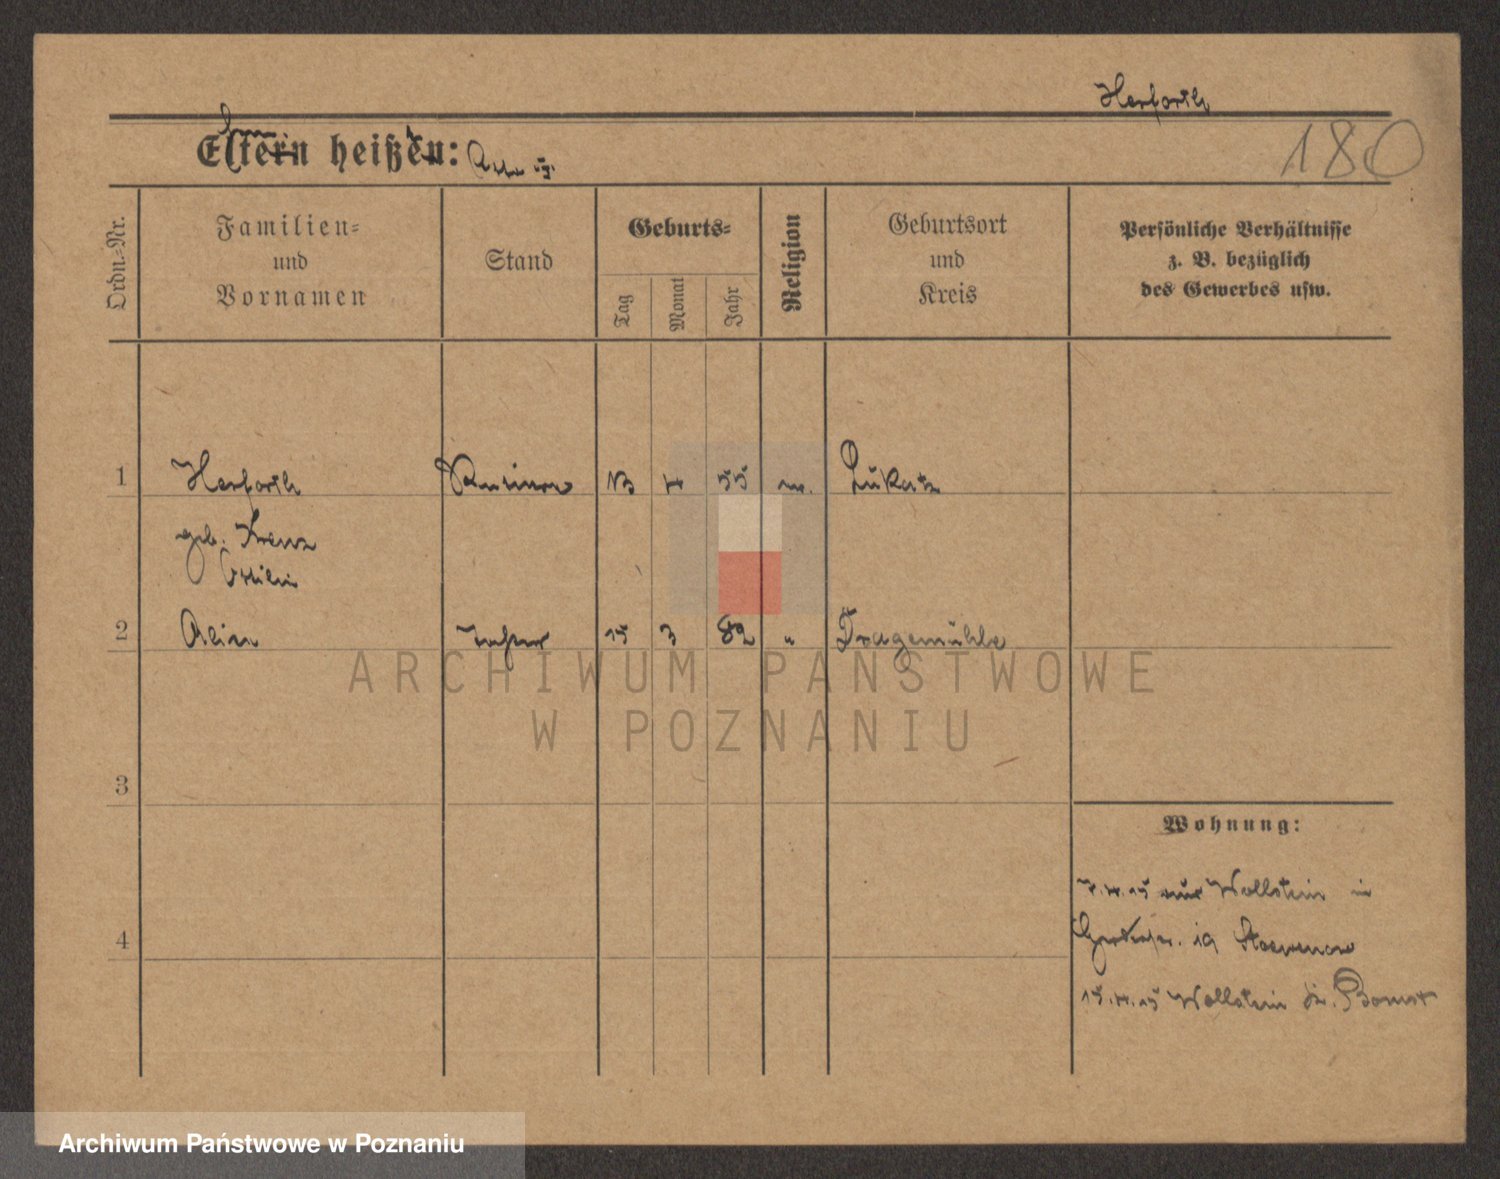 Herforth
180
Eltern heißen:
Ordn=Nr.
Familien=
und
Vornamen
Stand
Geburts=
Tag
Monat
Jahr
Religion
Geburtsort
und
Kreis
Persönliche Verhältnisse
z. B. bezüglich
des Gewerbes usw.
1 Herforth 13 4 55 Lukatz
geb. Krenz
Ottilie
2 15 3 82 " Dragemühle
3
Wohnung:
7.4.15 aus Wollstein in
19
4
15.4.15 Wollstein Kr. Bomst
ARCHIWUM PAŃSTWOWE
W POZNANIU
Archiwum Państwowe w Poznaniu